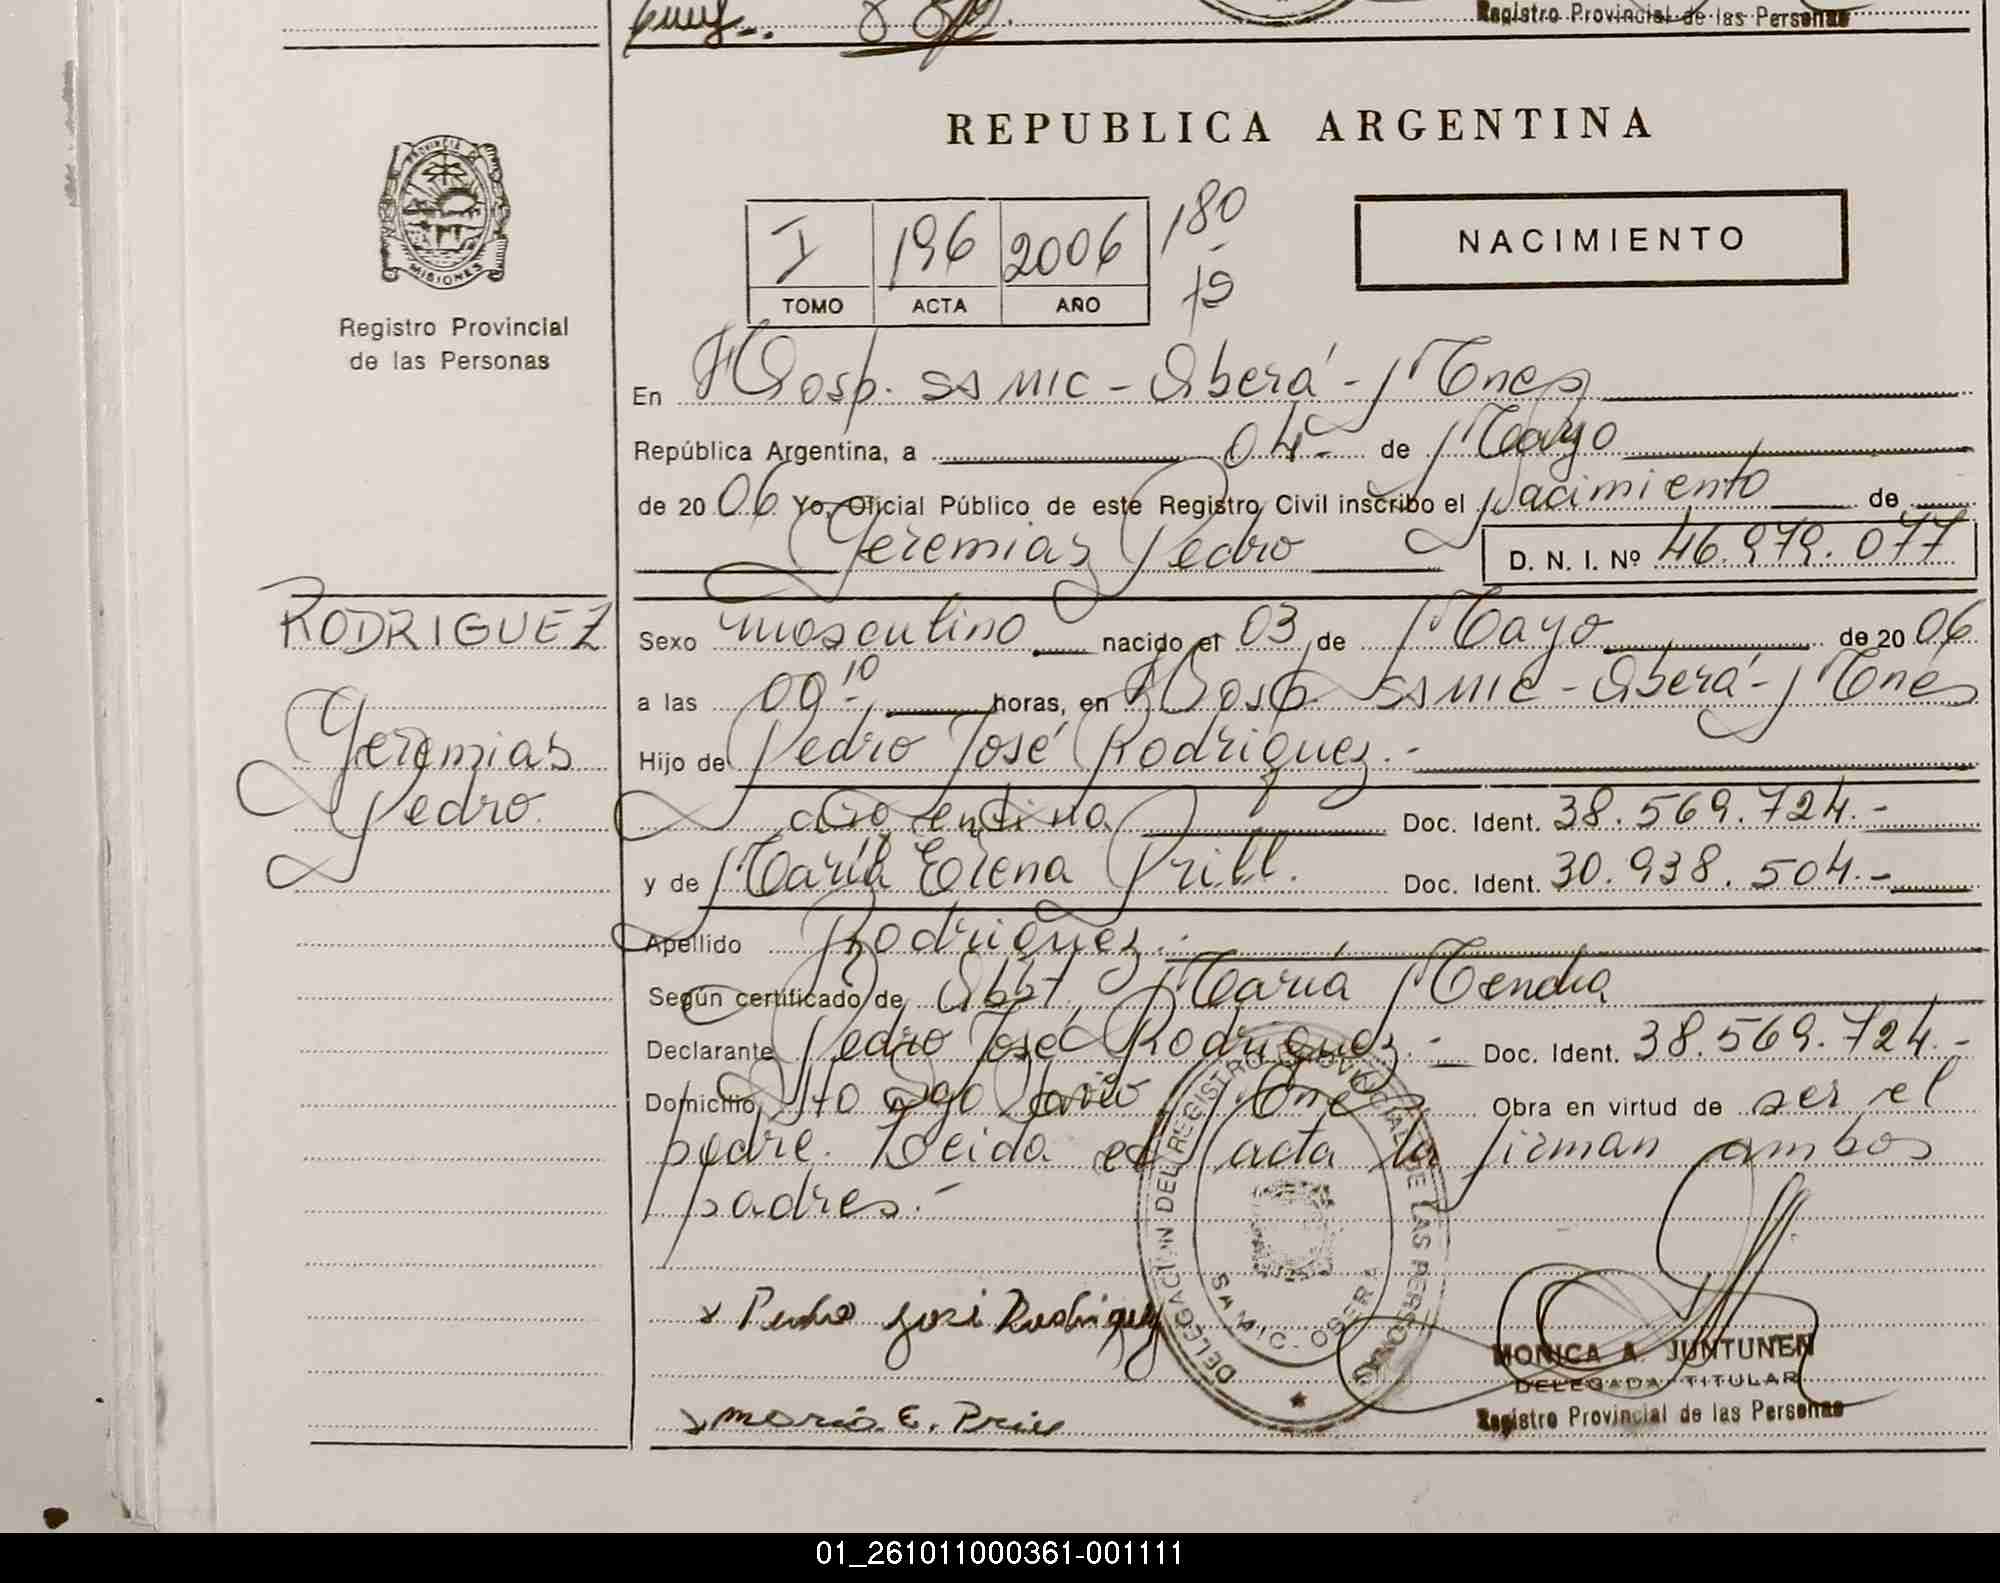 Registro Provincial de las Personas
PROVINCIA DE
MISIONES
Registro Provincial
de las Personas
REPUBLICA ARGENTINA
I 196 2006 180
TOMO ACTA AÑO
NACIMIENTO
En Hosp. SAMIC - Oberá - Mnes
República Argentina, a 04 - de Mayo
de 20 06 Yo, Oficial Público de este Registro Civil inscribo el Nacimiento de
Jeremias Pedro D. N. I. Nº 46.979.077
RODRIGUEZ
Jeremias
Pedro.
Sexo masculino nacido el 03 de Mayo de 20 06
a las 09 10 horas, en Hosp. SAMIC - Oberá - Mnes
Hijo de Pedro José Rodriguez. -
argentina Doc. Ident. 38.569.724.-
y de María Elena Prill. Doc. Ident. 30.938.504.-
Apellido Rodriguez.
Según certificado de Obst. María
Declarante Pedro José Rodriguez. - Doc. Ident. 38.569.724.-
Domicilio Mnes Obra en virtud de ser el
padre. Leida el acta la firman ambos
padres.-
x Pedro José Rodriguez
x Maria E. Prill
DELEGACION DEL REGISTRO PROVINCIAL DE LAS PERSONAS
OBERA
MONICA A. JUNTUNEN
DELEGADA TITULAR
Registro Provincial de las Personas
01_261011000361-001111